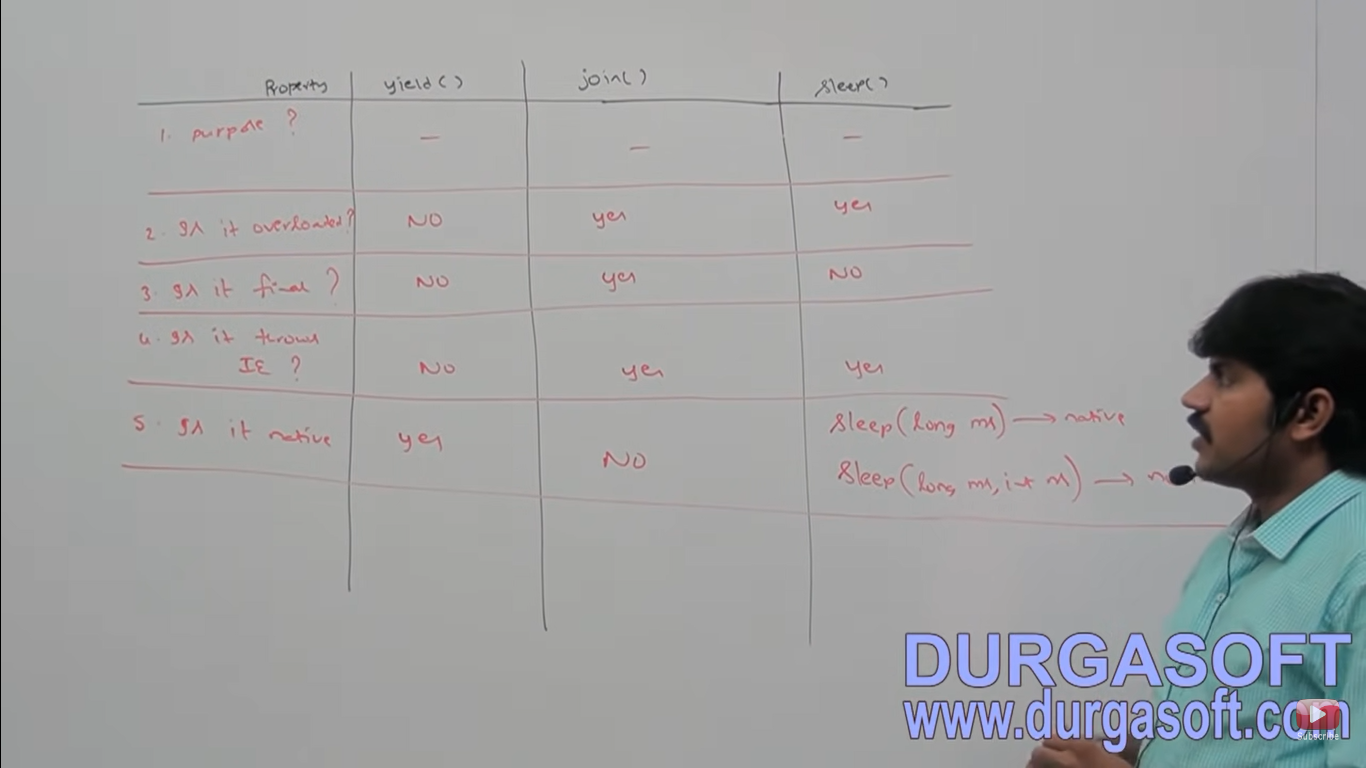 Property yield() join() sleep()
1. purpose ? — — —
2. Is it overloaded? NO yes yes
3. Is it final ? NO yes NO
4. Is it throws
IE ? NO yes yes
5. Is it native yes NO
sleep(long ms) → native
sleep(long ms, int ns) →
DURGASOFT
www.durgasoft.com
Subscribe